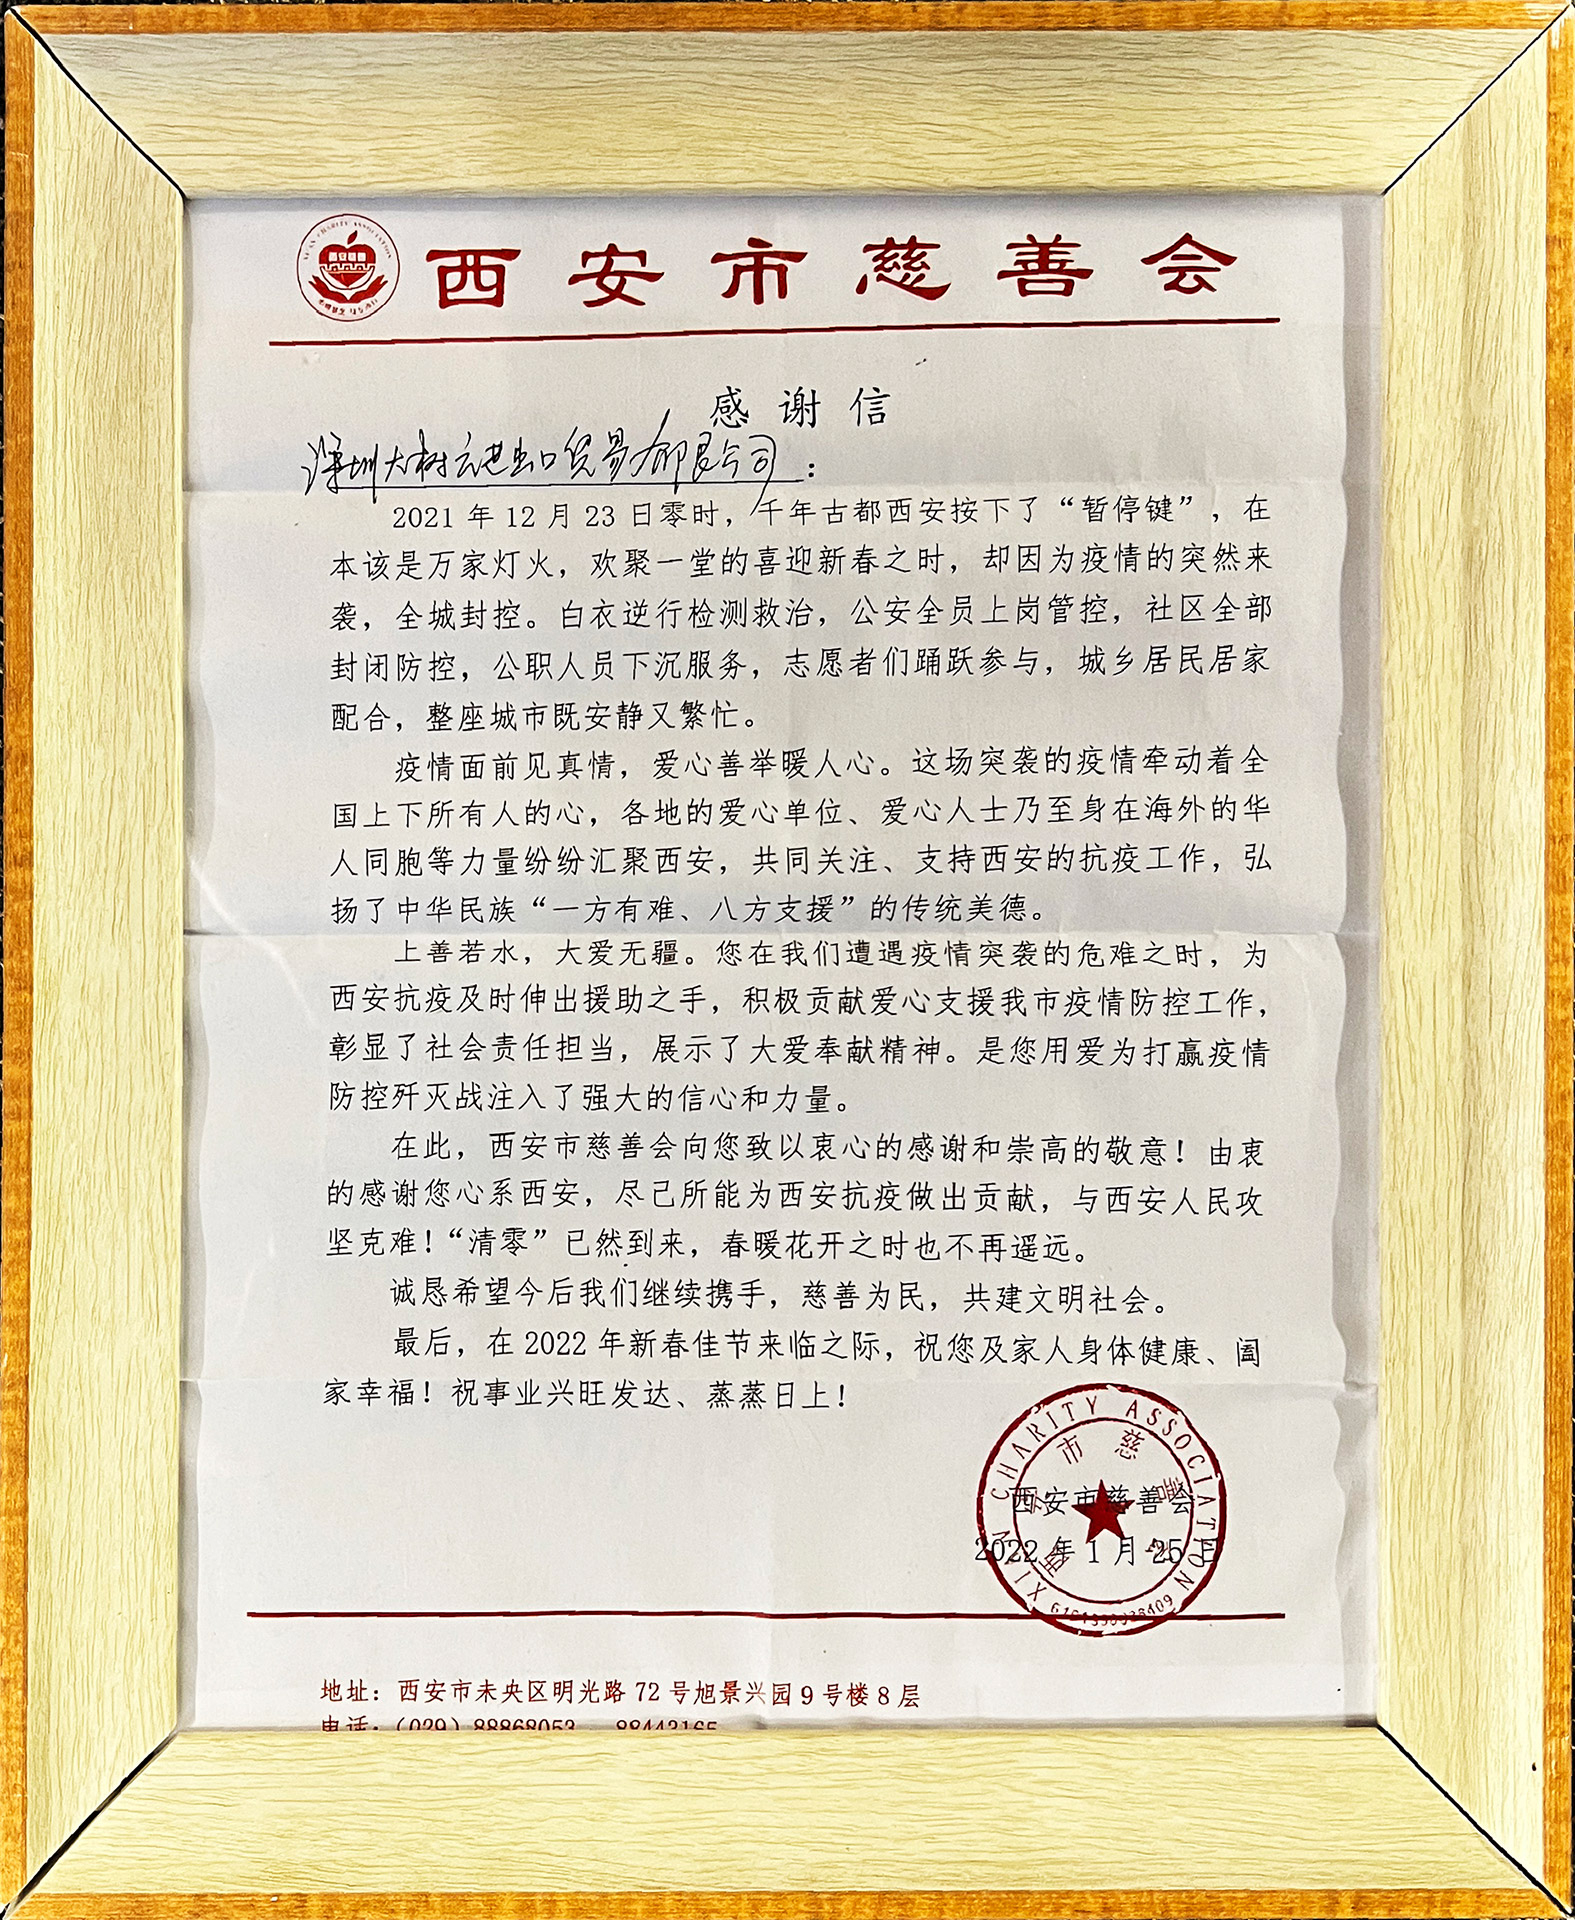 西安市慈善会
感谢信
深圳大树云进出口贸易有限公司：
2021年12月23日零时，千年古都西安按下了“暂停键”，在
本该是万家灯火，欢聚一堂的喜迎新春之时，却因为疫情的突然来
袭，全城封控。白衣逆行检测救治，公安全员上岗管控，社区全部
封闭防控，公职人员下沉服务，志愿者们踊跃参与，城乡居民居家
配合，整座城市既安静又繁忙。
疫情面前见真情，爱心善举暖人心。这场突袭的疫情牵动着全
国上下所有人的心，各地的爱心单位、爱心人士乃至身在海外的华
人同胞等力量纷纷汇聚西安，共同关注、支持西安的抗疫工作，弘
扬了中华民族“一方有难、八方支援”的传统美德。
上善若水，大爱无疆。您在我们遭遇疫情突袭的危难之时，为
西安抗疫及时伸出援助之手，积极贡献爱心支援我市疫情防控工作，
彰显了社会责任担当，展示了大爱奉献精神。是您用爱为打赢疫情
防控歼灭战注入了强大的信心和力量。
在此，西安市慈善会向您致以衷心的感谢和崇高的敬意！由衷
的感谢您心系西安，尽己所能为西安抗疫做出贡献，与西安人民攻
坚克难！“清零”已然到来，春暖花开之时也不再遥远。
诚恳希望今后我们继续携手，慈善为民，共建文明社会。
最后，在2022年新春佳节来临之际，祝您及家人身体健康、阖
家幸福！祝事业兴旺发达、蒸蒸日上！
西安市慈善会
2022年1月25日
XI'AN CHARITY ASSOCIATION
西安市慈善会
地址：西安市未央区明光路72号旭景兴园9号楼8层
电话：(029) 88868053 88443165